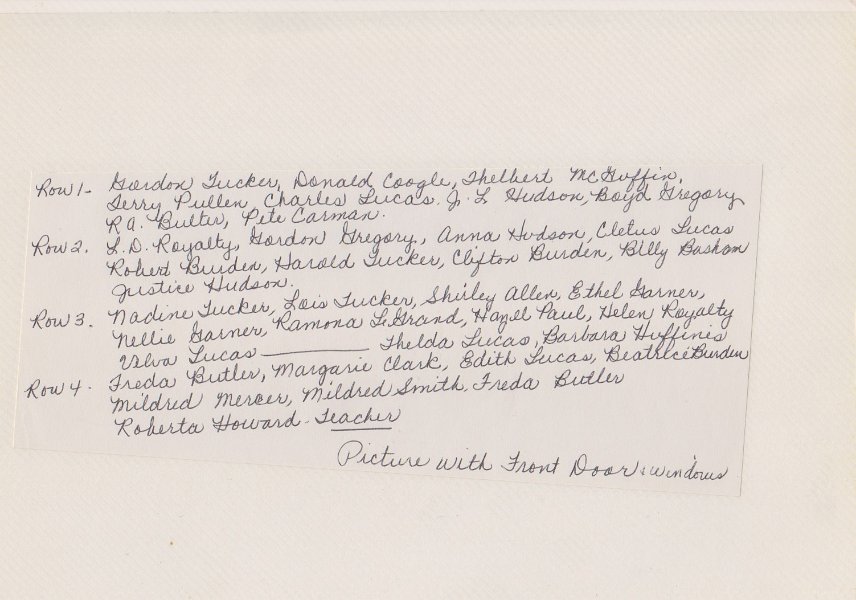 Row 1- Gordon Tucker, Donald Coogle, Thelbert McGuffin,
Terry Pullen, Charles Lucas, J. L. Hudson, Boyd Gregory
R A. Butler, Pete Carman.
Row 2. L. D. Royalty, Gordon Gregory, Anna Hudson, Cletus Lucas
Robert Burden, Harold Tucker, Clifton Burden, Billy Basham
Justice Hudson.
Row 3. Nadine Tucker, Lois Tucker, Shirley Allen, Ethel Garner,
Nellie Garner, Ramona LeGrand, Hazel Paul, Helen Royalty
Velva Lucas __________ Thelda Lucas, Barbara Huffines
Row 4. Freda Butler, Margarie Clark, Edith Lucas, Beatrice Burden
Mildred Mercer, Mildred Smith, Freda Butler
Roberta Howard - Teacher
Picture with Front Door & windows